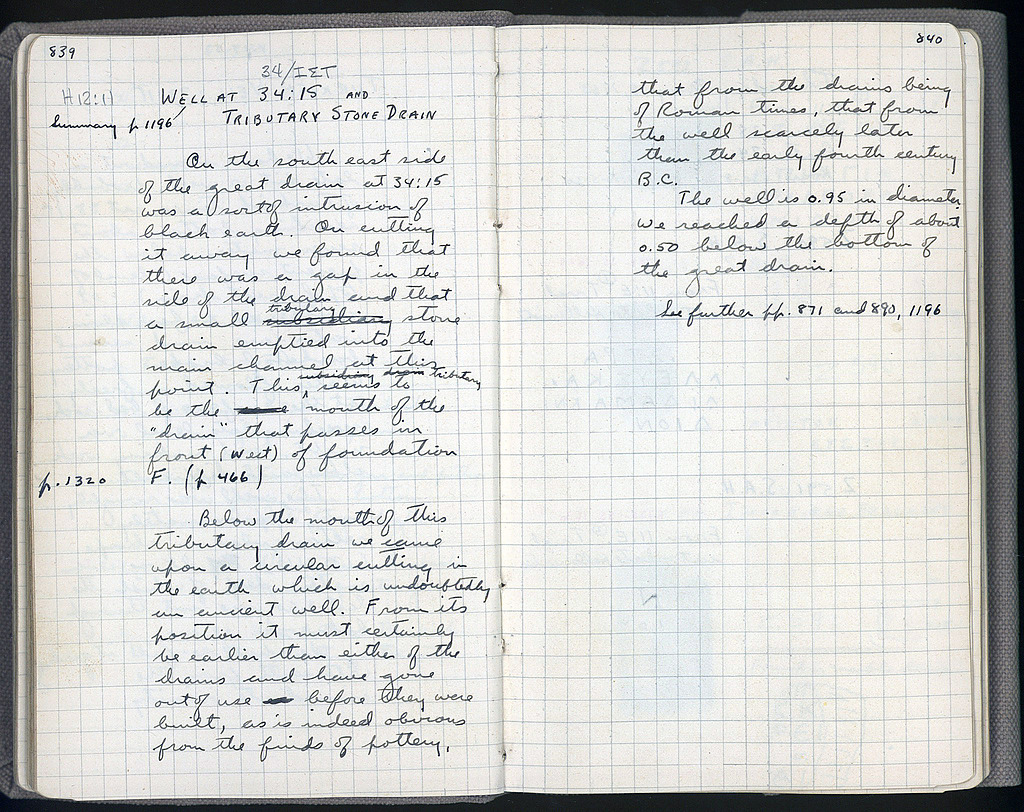 839
34/ΙΣΤ
H 12:1)
WELL AT 34:15 AND
Summary p 1196
TRIBUTARY STONE DRAIN
On the south east side
of the great drain at 34:15
was a sort of intrusion of
black earth. On cutting
it away we found that
there was a gap in the
side of the drain and that
tributary
a small subsidiary stone
drain emptied into the
main channel at this
subsidiary drain tributary
point. This seems to
be the mouth of the
"drain" that passes in
front (West) of foundation
p. 1320
F. (p 466)
Below the mouth of this
tributary drain we came
upon a circular cutting in
the earth which is undoubtedly
an ancient well. From its
position it must certainly
be earlier than either of the
drains and have gone
out of use before they were
built, as is indeed obvious
from the finds of pottery,
840
that from the drains being
of Roman times, that from
the well scarcely later
than the early fourth century
B.C.
The well is 0.95 in diameter
we reached a depth of about
0.50 below the bottom of
the great drain.
See further pp. 871 and 890, 1196